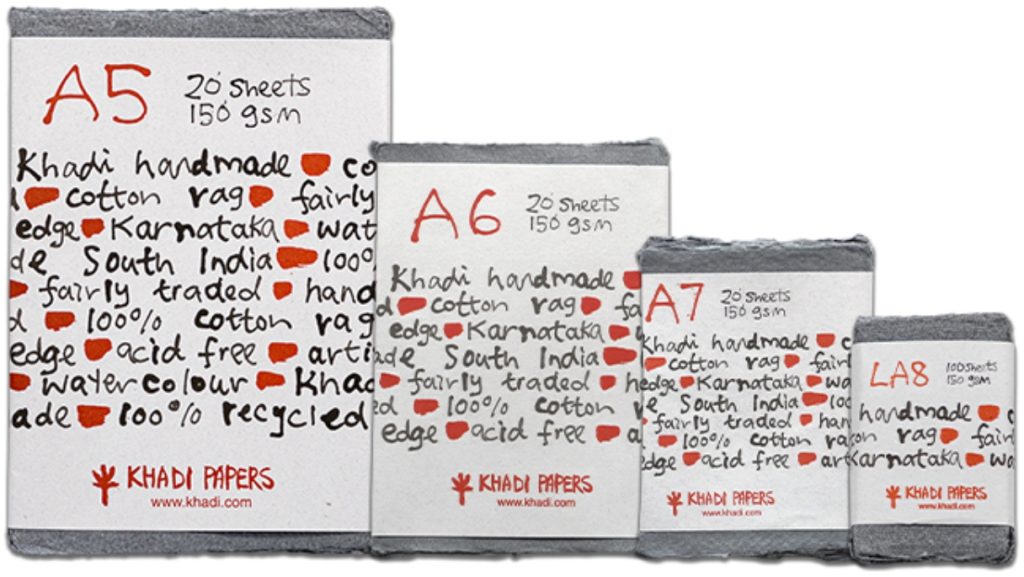 A5
20 sheets
150 gsm
Khadi handmade co
cotton rag fairly
edge Karnataka wat
de South India 100%
fairly traded hand
d 100% cotton rag
edge acid free arti
watercolour Khad
ade 100% recycled
KHADI PAPERS
www.khadi.com
A6
20 sheets
150 gsm
Khadi handmade
cotton rag fa
edge Karnataka w
de South India
fairly traded h
d 100% cotton r
edge acid free a
KHADI PAPERS
www.khadi.com
A7
20 sheets
150 gsm
Khadi handmade c
cotton rag fairl
edge Karnataka wa
South India 100
fairly traded han
100% cotton ra
edge acid free art
KHADI PAPERS
www.khadi.com
LA8
100 sheets
150 gsm
handmade c
on rag fairl
Karnataka wa
KHADI PAPERS
www.khadi.com